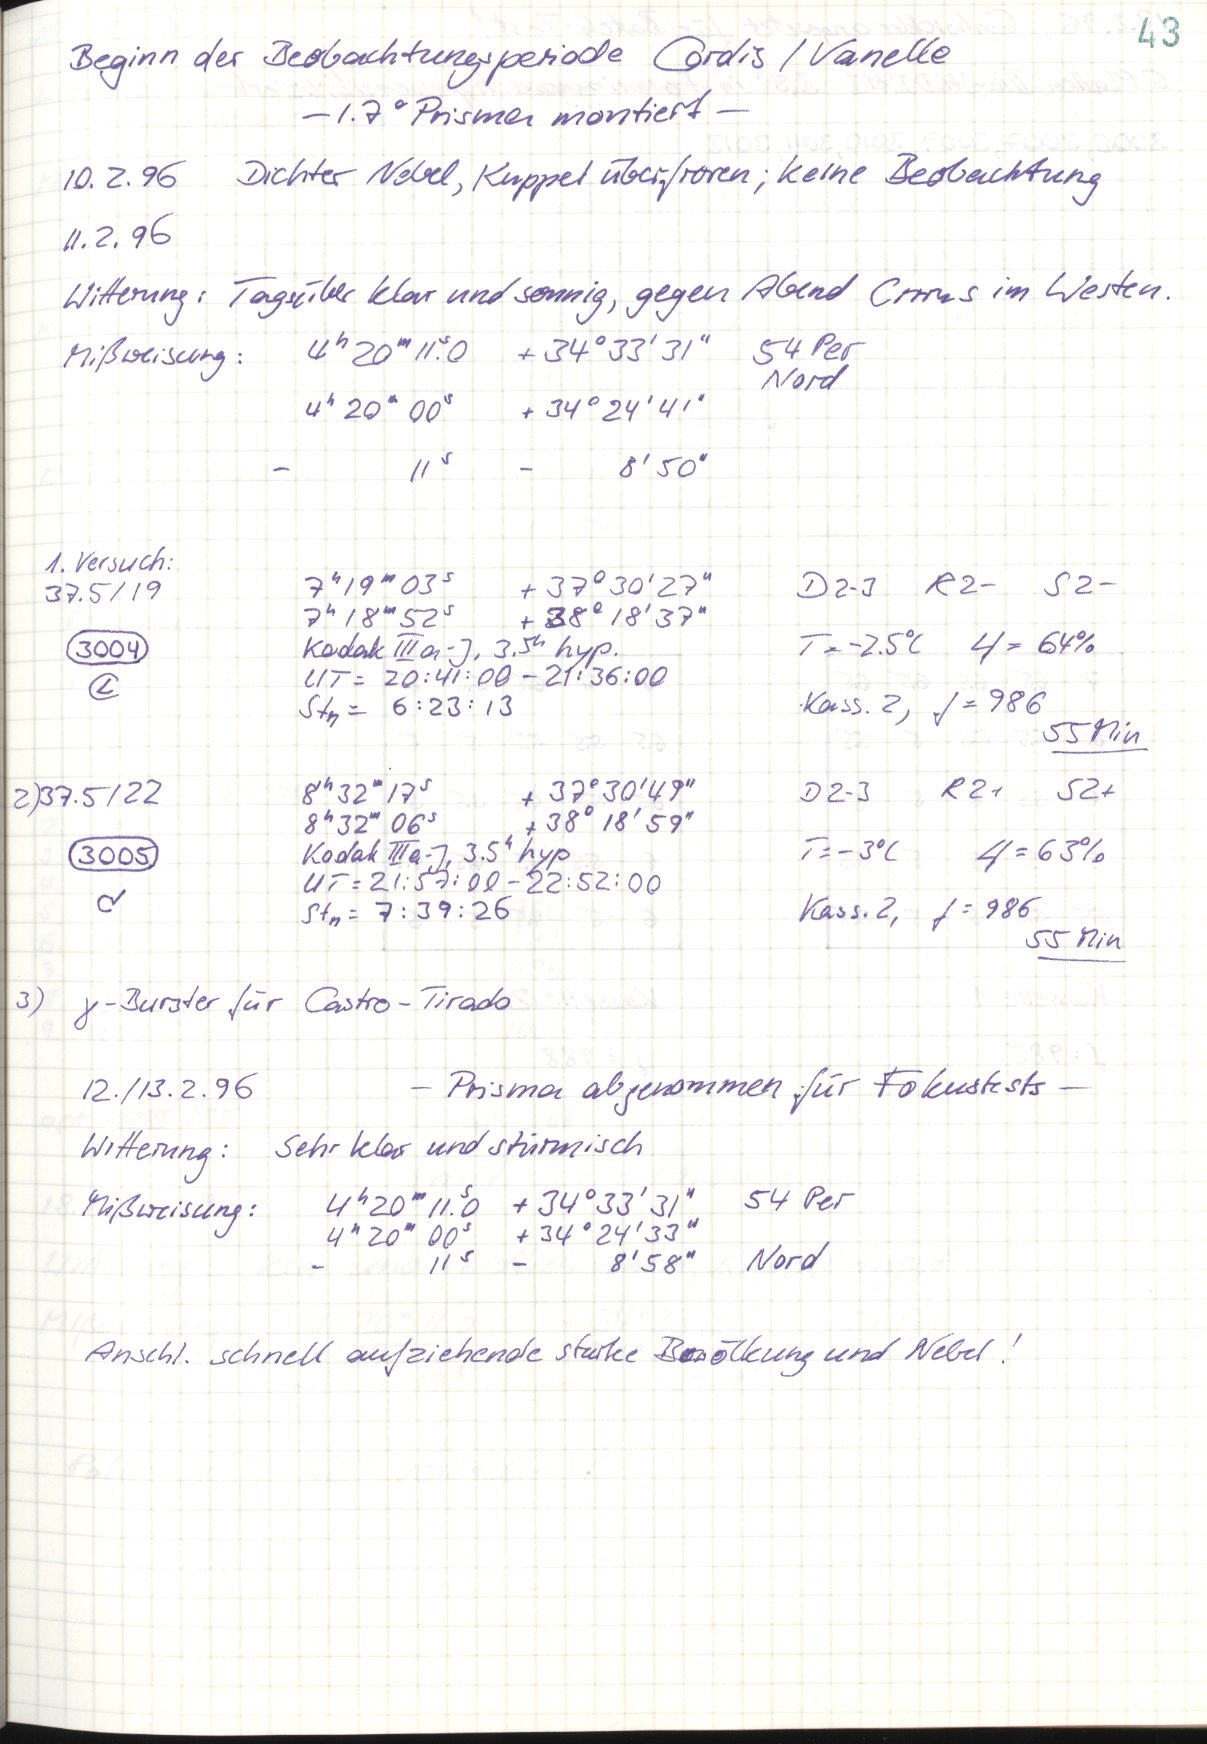 43
Beginn der Beobachtungsperiode Cordis / Vanelle
— 1.7° Prisma montiert —
10.2.96 Dichter Nebel, Kuppel überfroren; keine Beobachtung
11.2.96
Witterung: Tagsüber klar und sonnig, gegen Abend Cirrus im Westen.
Mißweisung: 4ʰ 20ᵐ 11ˢ.0 + 34° 33' 31" 54 Per
Nord
4ʰ 20ᵐ 00ˢ + 34° 24' 41"
- 11ˢ - 8' 50"
1. Versuch:
37.5/19 7ʰ 19ᵐ 03ˢ + 37° 30' 27" D2-3 R2- S2-
7ʰ 18ᵐ 52ˢ + 38° 18' 37"
3004 Kodak IIIa-J, 3.5ʰ hyp. T = -2.5°C 4 = 64%
UT = 20:41:00 - 21:36:00
Stₙ = 6:23:13 Kass. 2, f = 986
55 Min
2) 37.5/22 8ʰ 32ᵐ 17ˢ + 37° 30' 49" D2-3 R2+ S2+
8ʰ 32ᵐ 06ˢ + 38° 18' 59"
3005 Kodak IIIa-J, 3.5ʰ hyp T = -3°C 4 = 63%
UT = 21:57:00 - 22:52:00
Stₙ = 7:39:26 Kass. 2, f = 986
55 Min
3) γ-Burster für Castro-Tirado
12./13.2.96 — Prisma abgenommen für Fokustests —
Witterung: Sehr klar und stürmisch
Mißweisung: 4ʰ 20ᵐ 11ˢ.0 + 34° 33' 31" 54 Per
4ʰ 20ᵐ 00ˢ + 34° 24' 33"
- 11ˢ - 8' 58" Nord
Anschl. schnell aufziehende starke Bewölkung und Nebel!